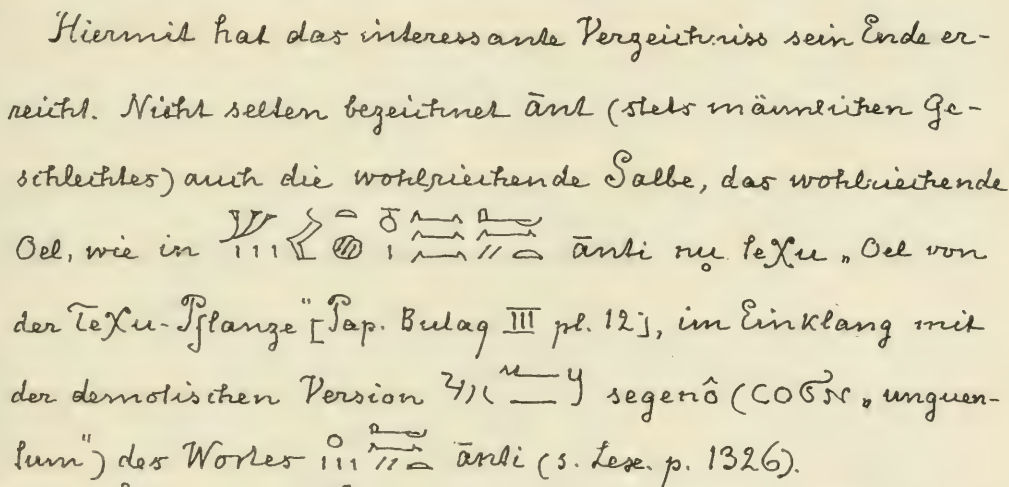 Hiermit hat das interessante Verzeichniss sein Ende er-
reicht. Nicht selten bezeichnet ānt (stets männlichen Ge-
schlechtes) auch die wohlriechende Salbe, das wohlriechende
Oel, wie in ānti nu teχu „Oel von
der Teχu-Pflanze" [Pap. Bulaq III pl. 12], im Einklang mit
der demotischen Version segenô (ⲤⲞϬⲚ „unguen-
tum") des Wortes ānti (s. Lex. p. 1326).